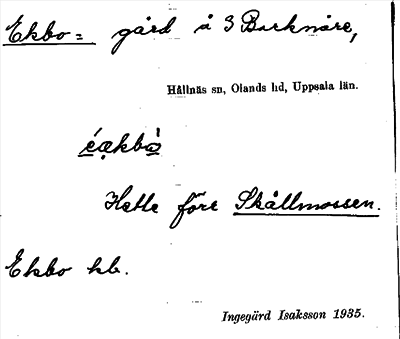 Ekbo = gård å 3 Barknåre,
Hållnäs sn, Olands hd, Uppsala län.
é̱ækbò̱
Hette förr Skållmossen.
Ekbo kb.
Ingegärd Isaksson 1935.